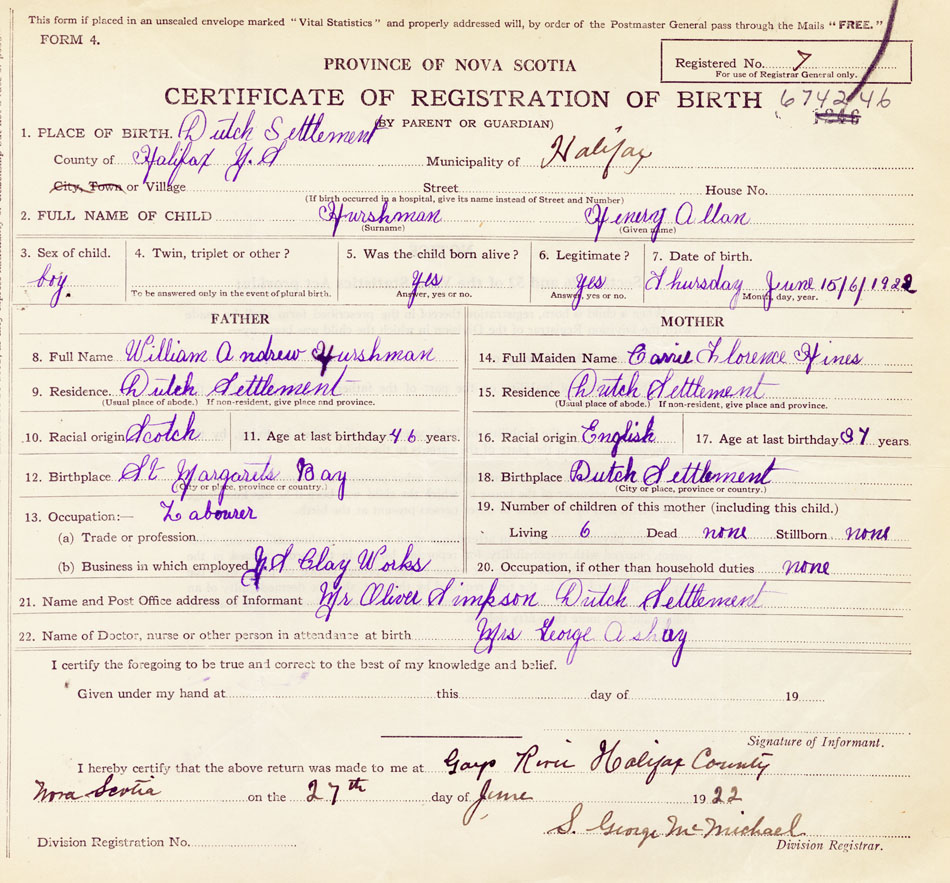 This form if placed in an unsealed envelope marked "Vital Statistics" and properly addressed will, by order of the Postmaster General pass through the Mails "FREE."
FORM 4.
Registered No. 7
For use of Registrar General only.
PROVINCE OF NOVA SCOTIA
CERTIFICATE OF REGISTRATION OF BIRTH 674246
(BY PARENT OR GUARDIAN)
1. PLACE OF BIRTH. Dutch Settlement
County of Halifax N.S Municipality of Halifax
City, Town or Village Street House No.
(If birth occurred in a hospital, give its name instead of Street and Number)
2. FULL NAME OF CHILD Hurshman Henery Allan
(Surname) (Given name)
3. Sex of child. 4. Twin, triplet or other? 5. Was the child born alive? 6. Legitimate? 7. Date of birth.
boy. yes yes Thursday June 15/6/1922
To be answered only in the event of plural birth. Answer, yes or no. Answer, yes or no. Month, day, year.
FATHER MOTHER
8. Full Name William Andrew Hurshman 14. Full Maiden Name Carrie Florence Hines
9. Residence. Dutch Settlement 15. Residence Dutch Settlement
(Usual place of abode.) If non-resident, give place and province. (Usual place of abode.) If non-resident, give place and province.
10. Racial origin Scotch 11. Age at last birthday 46 years. 16. Racial origin English 17. Age at last birthday 37 years
12. Birthplace St Margarets Bay 18. Birthplace Dutch Settlement
(City or place, province or country.) (City or place, province or country.)
13. Occupation:— Labourer 19. Number of children of this mother (including this child.)
(a) Trade or profession Living 6 Dead none Stillborn none
(b) Business in which employed N.S Clay Works 20. Occupation, if other than household duties none
21. Name and Post Office address of Informant Mr Oliver Simpson Dutch Settlement
22. Name of Doctor, nurse or other person in attendance at birth Mrs George Ashley
I certify the foregoing to be true and correct to the best of my knowledge and belief.
Given under my hand at this day of 19
Signature of Informant.
I hereby certify that the above return was made to me at Gays River Halifax County
Nova Scotia on the 27th day of June 1922
S. George McMichael
Division Registration No. Division Registrar.